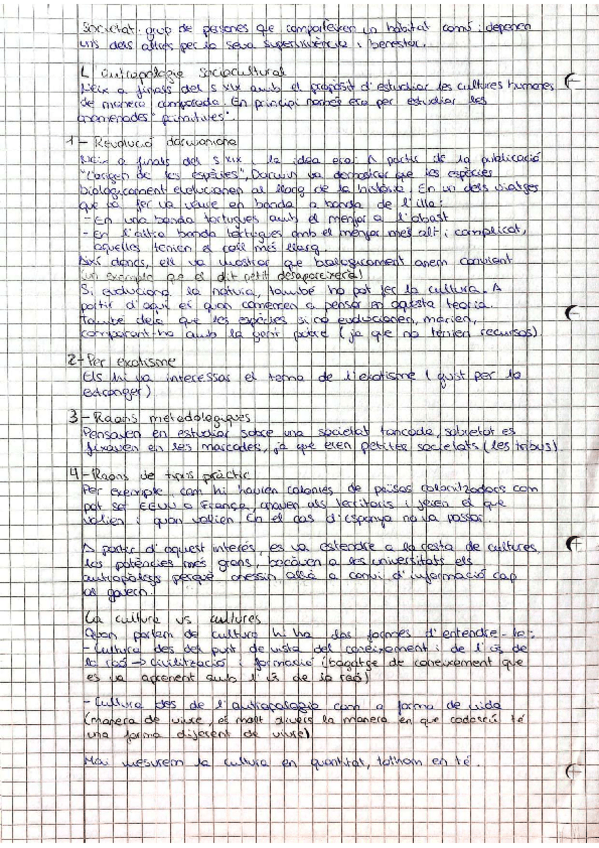 Societat: grup de persones que comparteixen un hàbitat comú i depenen
uns dels altres per la seva supervivència i benestar.
L'antropologia sociocultural
Neix a finals del s XIX amb el propòsit d'estudiar les cultures humanes
de manera comparada. En principi només era per estudiar les
anomenades "primitives".
1 - Revolució darwiniana
Neix a finals del s XIX i la idea era: A partir de la publicació
"L'origen de les espècies", Darwin va demostrar que les espècies
biològicament evolucionen al llarg de la història. En un dels viatges
que va fer va veure en banda a banda de l'illa:
- En una banda tortugues amb el menjar a l'abast
- En l'altra banda tortugues amb el menjar més alt i complicat,
aquelles tenien el coll més llarg.
Així doncs, ell va mostrar que biològicament anem canviant
(un exemple que el dit petit desapareixerà)
Si evoluciona la natura, també ho pot fer la cultura. A
partir d'aquí és quan comencen a pensar en aquesta teoria.
També deia que les espècies si no evolucionen, morien,
comparant-ho amb la gent pobre (ja que no tenien recursos)
2 - Per exotisme
Els hi va interessar el tema de l'exotisme (gust per lo
estranger)
3 - Raons metodològiques
Pensaven en estudiar sobre una societat tancada, sobretot es
fixaven en les marcades, ja que eren petites societats (les tribus).
4 - Raons de tipus pràctic
Per exemple, com hi havien colonies de països colonitzadors com
pot ser EEUU o França, anaven als territoris i feien el que
volien i quan volien. En el cas d'Espanya no va passar.
A partir d'aquest interés, es va estendre a la resta de cultures,
les potències més grans, becaven a les universitats els
antropòlegs perquè anessin allà a canvi d'informació cap
al govern.
La cultura vs cultures
Quan parlam de cultura hi ha dos formes d'entendre-la:
- Cultura des del punt de vista del coneixement i de l'ús de
la raó → civilització i formació (bagatge de coneixement que
es va aprenent amb l'ús de la raó)
- Cultura des de l'antropologia com a forma de vida
(manera de viure, és molt divers la manera en que cadascú té
una forma diferent de viure)
Mai mesurem la cultura en quantitat, tothom en té.